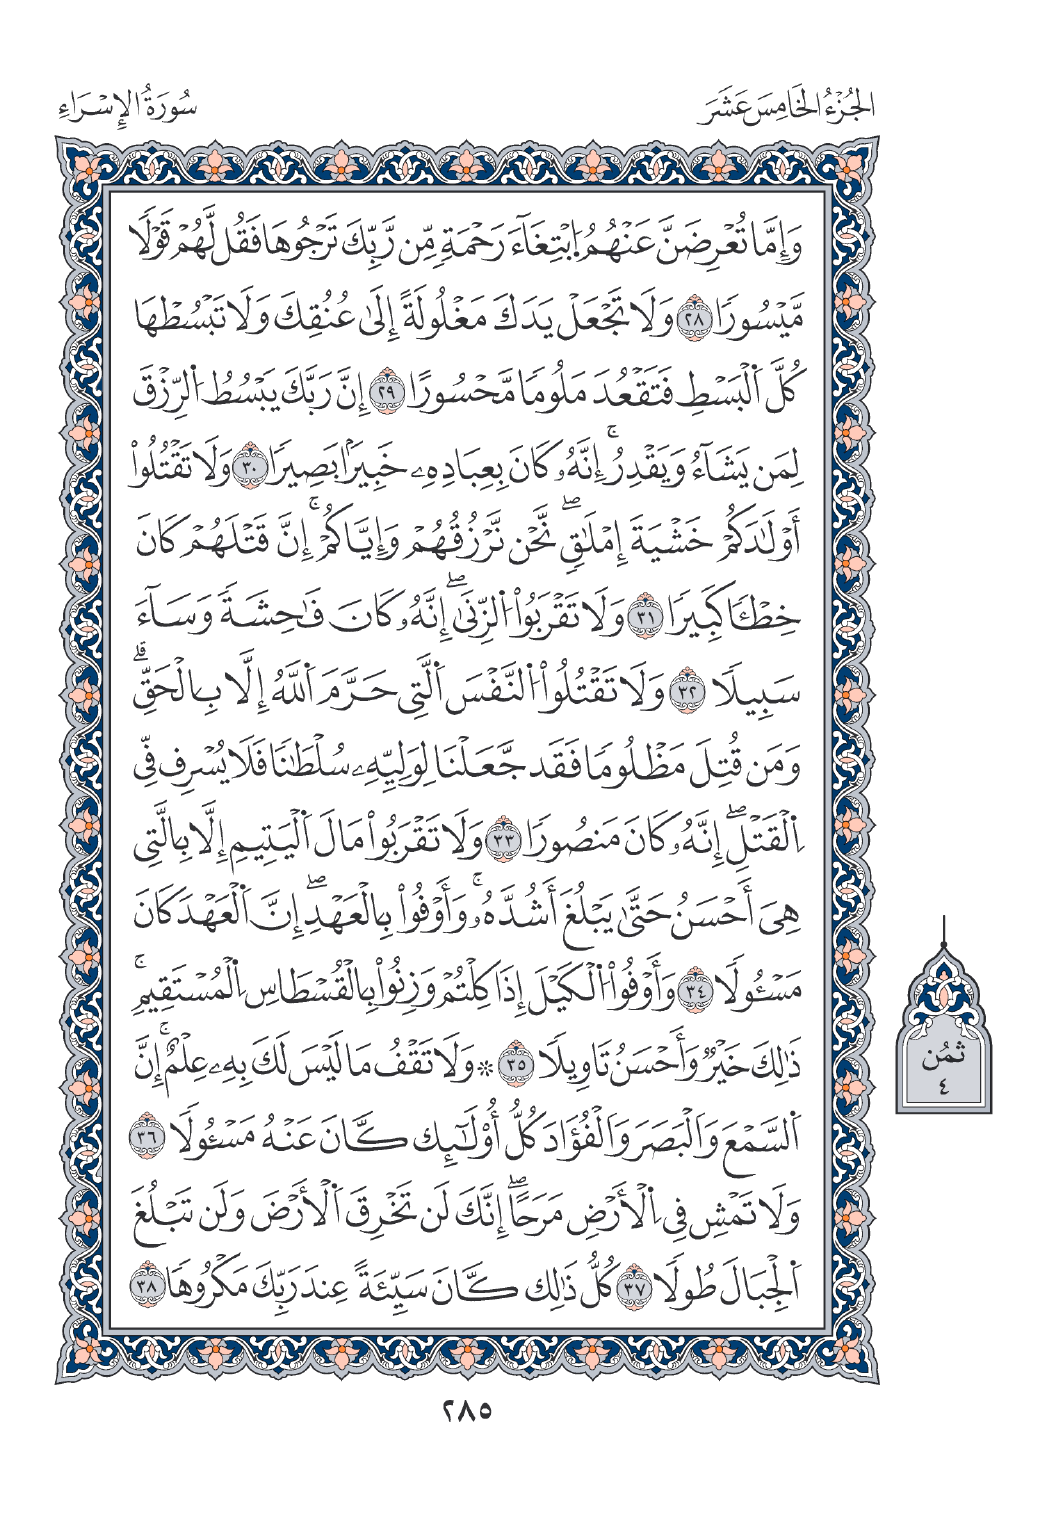 الجُزْءُ الخَامِسَ عَشَرَ
سُورَةُ الإِسْرَاءِ
وَإِمَّا تُعْرِضَنَّ عَنْهُمُ اُ۪بْتِغَآءَ رَحْمَةٖ مِّن رَّبِّكَ تَرْجُوهَا فَقُل لَّهُمْ قَوْلٗا
مَّيْسُورٗا ۝٢٨ وَلَا تَجْعَلْ يَدَكَ مَغْلُولَةً إِلَىٰ عُنُقِكَ وَلَا تَبْسُطْهَا
كُلَّ اَ۬لْبَسْطِ فَتَقْعُدَ مَلُومٗا مَّحْسُورًا ۝٢٩ إِنَّ رَبَّكَ يَبْسُطُ اُ۬لرِّزْقَ
لِمَن يَشَآءُ وَيَقْدِرُۚ إِنَّهُۥ كَانَ بِعِبَادِهِۦ خَبِيرَۢا بَصِيرٗا ۝٣٠ وَلَا تَقْتُلُوٓاْ
أَوْلَٰدَكُمْ خَشْيَةَ إِمْلَٰقٖۖ نَّحْن نَّرْزُقُهُمْ وَإِيَّاكُمْۚ إِنَّ قَتْلَهُمْ كَانَ
خِطْـٔٗا كَبِيرٗا ۝٣١ وَلَا تَقْرَبُواْ اُ۬لزِّنَىٰٓۖ إِنَّهُۥ كَانَ فَٰحِشَةٗ وَسَآءَ
سَبِيلٗا ۝٣٢ وَلَا تَقْتُلُواْ اُ۬لنَّفْسَ اَ۬لَّتِي حَرَّمَ اَ۬للَّهُ إِلَّا بِالْحَقِّۗ
وَمَن قُتِلَ مَظْلُومٗا فَقَد جَّعَلْنَا لِوَلِيِّهِۦ سُلْطَٰنٗا فَلَا يُسْرِف فِّي
اِ۬لْقَتْلِۖ إِنَّهُۥ كَانَ مَنصُورٗا ۝٣٣ وَلَا تَقْرَبُواْ مَالَ اَ۬لْيَتِيمِ إِلَّا بِالَّتِي
هِيَ أَحْسَنُ حَتَّىٰ يَبْلُغَ أَشُدَّهُۥۚ وَأَوْفُواْ بِالْعَهْدِۖ إِنَّ اَ۬لْعَهْدَ كَانَ
مَسْـُٔولٗا ۝٣٤ وَأَوْفُواْ اُ۬لْكَيْلَ إِذَا كِلْتُمْ وَزِنُواْ بِالْقُسْطَاسِ اِ۬لْمُسْتَقِيمِۚ
ذَٰلِكَ خَيْرٞ وَأَحْسَنُ تَاوِيلٗا ۝٣٥ ۞ وَلَا تَقْفُ مَا لَيْسَ لَكَ بِهِۦ عِلْمٌۚ إِنَّ
اَ۬لسَّمْعَ وَالْبَصَرَ وَالْفُؤَادَ كُلُّ أُوْلَٰٓئِك كَّانَ عَنْهُ مَسْـُٔولٗا ۝٣٦
وَلَا تَمْشِ فِي اِ۬لْأَرْضِ مَرَحًاۖ إِنَّكَ لَن تَخْرِقَ اَ۬لْأَرْضَ وَلَن تَبْلُغَ
اَ۬لْجِبَالَ طُولٗا ۝٣٧ كُلُّ ذَٰلِك كَّانَ سَيِّئَةً عِندَ رَبِّكَ مَكْرُوهٗا ۝٣٨
ثمُن
٤
٢٨٥